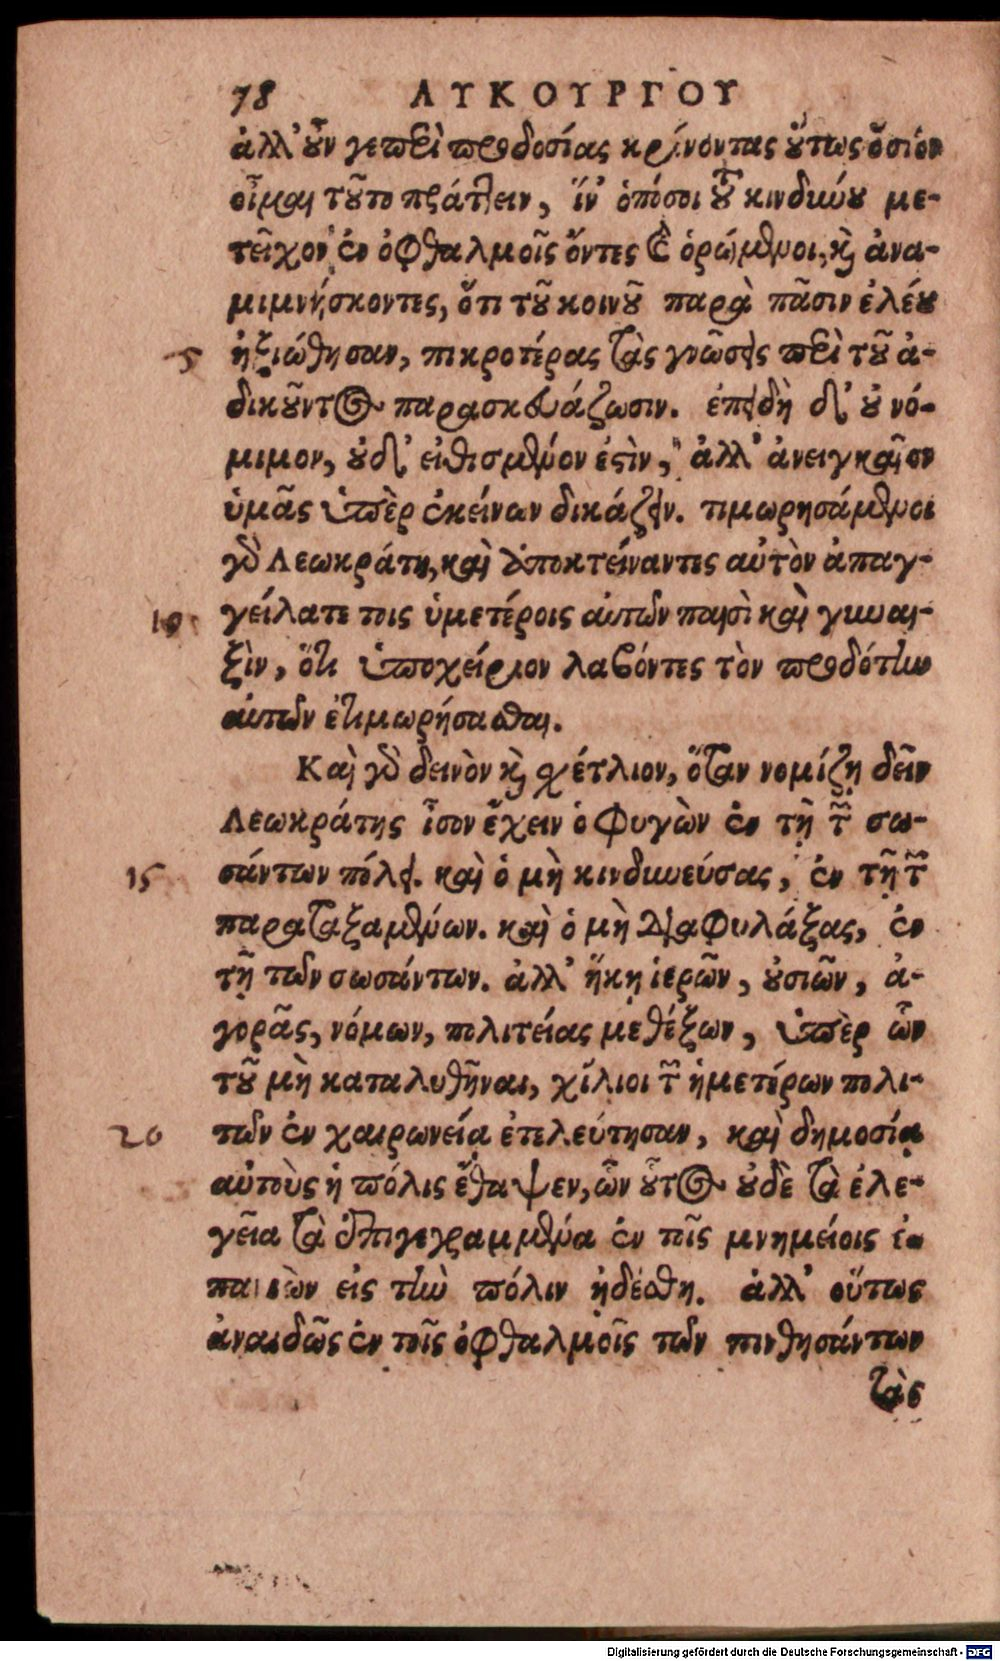 78 ΛΥΚΟΥΡΓΟΥ
ἀλλ' οὖν γε περὶ προδοσίας κρίνοντας οὕτως ὅσιόν
οἶμαι τοῦτο πράττειν, ἵν' ὁπόσοι τοῦ κινδύνου με-
τεῖχον ἐν ὀφθαλμοῖς ὄντες καὶ ὁρώμενοι, καὶ ἀνα-
μιμνήσκοντες, ὅτι τοῦ κοινοῦ παρὰ πᾶσιν ἐλέου
5 ἠξιώθησαν, πικροτέρας τὰς γνώσεις περὶ τοῦ ἀ-
δικοῦντος παρασκευάζωσιν. ἐπειδὴ δ' οὐ νό-
μιμον, οὐδ' εἰθισμένον ἐστὶν, ἀλλ' ἀνειγκαῖον
ὑμᾶς ὑπὲρ ἐκείνων δικάζειν. τιμωρησάμενοι
γὰρ Λεωκράτη, καὶ ἀποκτείναντες αὐτὸν ἀπαγ-
10 γείλατε τοις ὑμετέροις αὐτῶν παισὶ καὶ γυναι-
ξὶν, ὅτι ὑποχείριον λαβόντες τὸν προδότην
αὐτῶν ἐτιμωρήσασθαι.
Καὶ γὰρ δεινὸν καὶ σχέτλιον, ὅταν νομίζῃ δεῖν
Λεωκράτης ἶσον ἔχειν ὁ φυγὼν ἐν τῇ τῶν σω-
15 σάντων πόλει. καὶ ὁ μὴ κινδυνεύσας, ἐν τῇ τῶν
παραταξαμένων. καὶ ὁ μὴ διαφυλάξας, ἐν
τῇ τῶν σωσάντων. ἀλλ' ἥκῃ ἱερῶν, οὐσιῶν, ἀ-
γορᾶς, νόμων, πολιτείας μεθέξων, ὑπὲρ ὧν
τοῦ μὴ καταλυθῆναι, χίλιοι τῶν ἡμετέρων πολι-
20 τῶν ἐν χαιρωνείᾳ ἐτελεύτησαν, καὶ δημοσίᾳ
αὐτοὺς ἡ πόλις ἔθαψεν, ὧν οὗτος οὐδὲ τὰ ἐλε-
γεῖα τὰ ἐπιγεγραμμένα ἐν τοῖς μνημείοις
εἰς τὴν πόλιν ᾐδέσθη. ἀλλ' οὕτως
ἀναιδῶς ἐν τοῖς ὀφθαλμοῖς τῶν πενθησάντων
τὰς
Digitalisierung gefördert durch die Deutsche Forschungsgemeinschaft - DFG